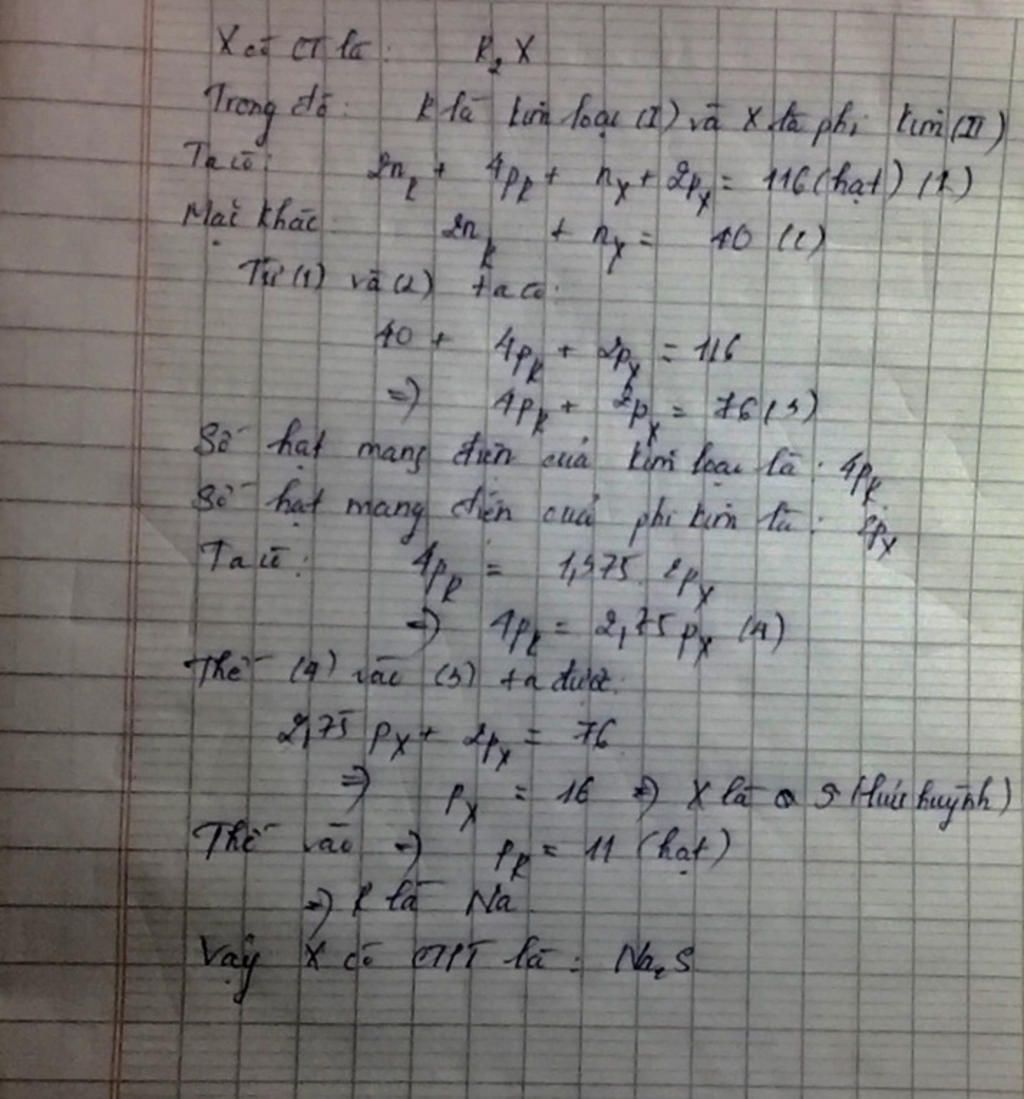 X có CT là: R₂X
Trong đó: R là kim loại (I) và X là phi kim (II)
Ta có: 2n_R + 4p_R + n_X + 2p_X = 116 (hạt) (1)
Mặt khác 2n_R + n_X = 40 (2)
Từ (1) và (2) ta có:
40 + 4p_R + 2p_X = 116
=> 4p_R + 2p_X = 76 (3)
Số hạt mang điện của kim loại là: 4p_R
Số hạt mang điện của phi kim là: 2p_X
Ta có: 4p_R = 1,375. 2p_X
=> 4p_R = 2,75 p_X (4)
Thế (4) vào (3) ta được:
2,75 p_X + 2p_X = 76
=> p_X = 16 => X là S (lưu huỳnh)
Thế vào => p_R = 11 (hạt)
=> R là Na
Vậy X có CTPT là: Na₂S